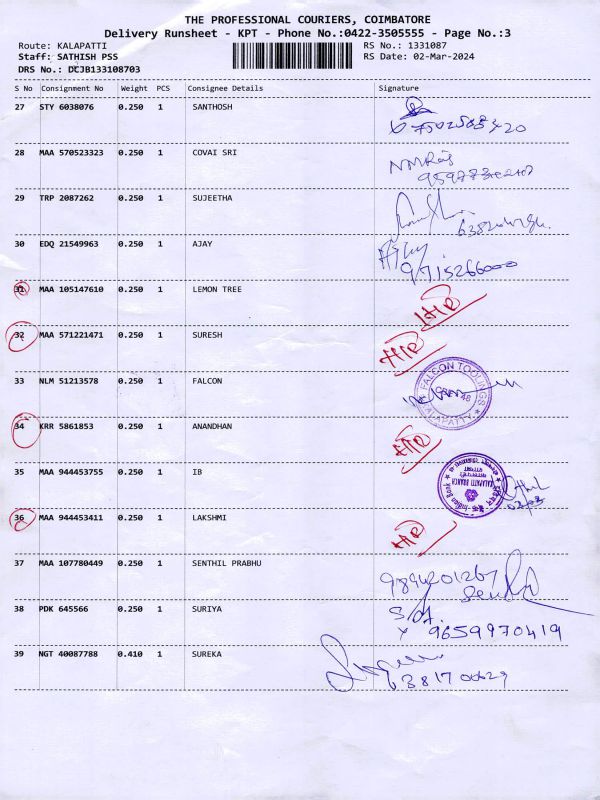 THE PROFESSIONAL COURIERS, COIMBATORE
Delivery Runsheet - KPT - Phone No.:0422-3505555 - Page No.:3
Route: KALAPATTI RS No.: 1331087
Staff: SATHISH PSS RS Date: 02-Mar-2024
DRS No.: DCJB133108703
S No Consignment No Weight PCS Consignee Details Signature
27 STY 6038076 0.250 1 SANTHOSH
28 MAA 570523323 0.250 1 COVAI SRI
29 TRP 2087262 0.250 1 SUJEETHA
30 EDQ 21549963 0.250 1 AJAY
9715266000
31 MAA 105147610 0.250 1 LEMON TREE
32 MAA 571221471 0.250 1 SURESH
33 NLM 51213578 0.250 1 FALCON
FALCON TOOLINGS
KALAPATTY
34 KRR 5861853 0.250 1 ANANDHAN
35 MAA 944453755 0.250 1 IB
Indian Bank
KALAPATTI BRANCH
36 MAA 944453411 0.250 1 LAKSHMI
37 MAA 107780449 0.250 1 SENTHIL PRABHU
38 PDK 645566 0.250 1 SURIYA
9659970419
39 NGT 40087788 0.410 1 SUREKA